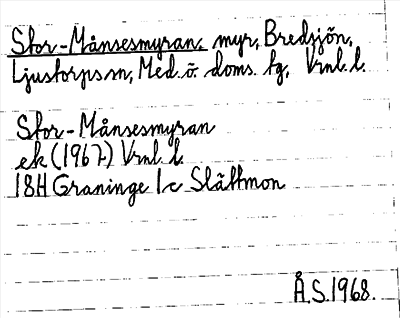 Stor-Månsesmyran. myr, Bredsjön,
Ljustorps sn, Med. ö. doms. tg, Vrnl. l.
Stor-Månsesmyran
ek (1967) Vrnl. l.
18H Graninge 1c Slättmon
Å.S. 1968.